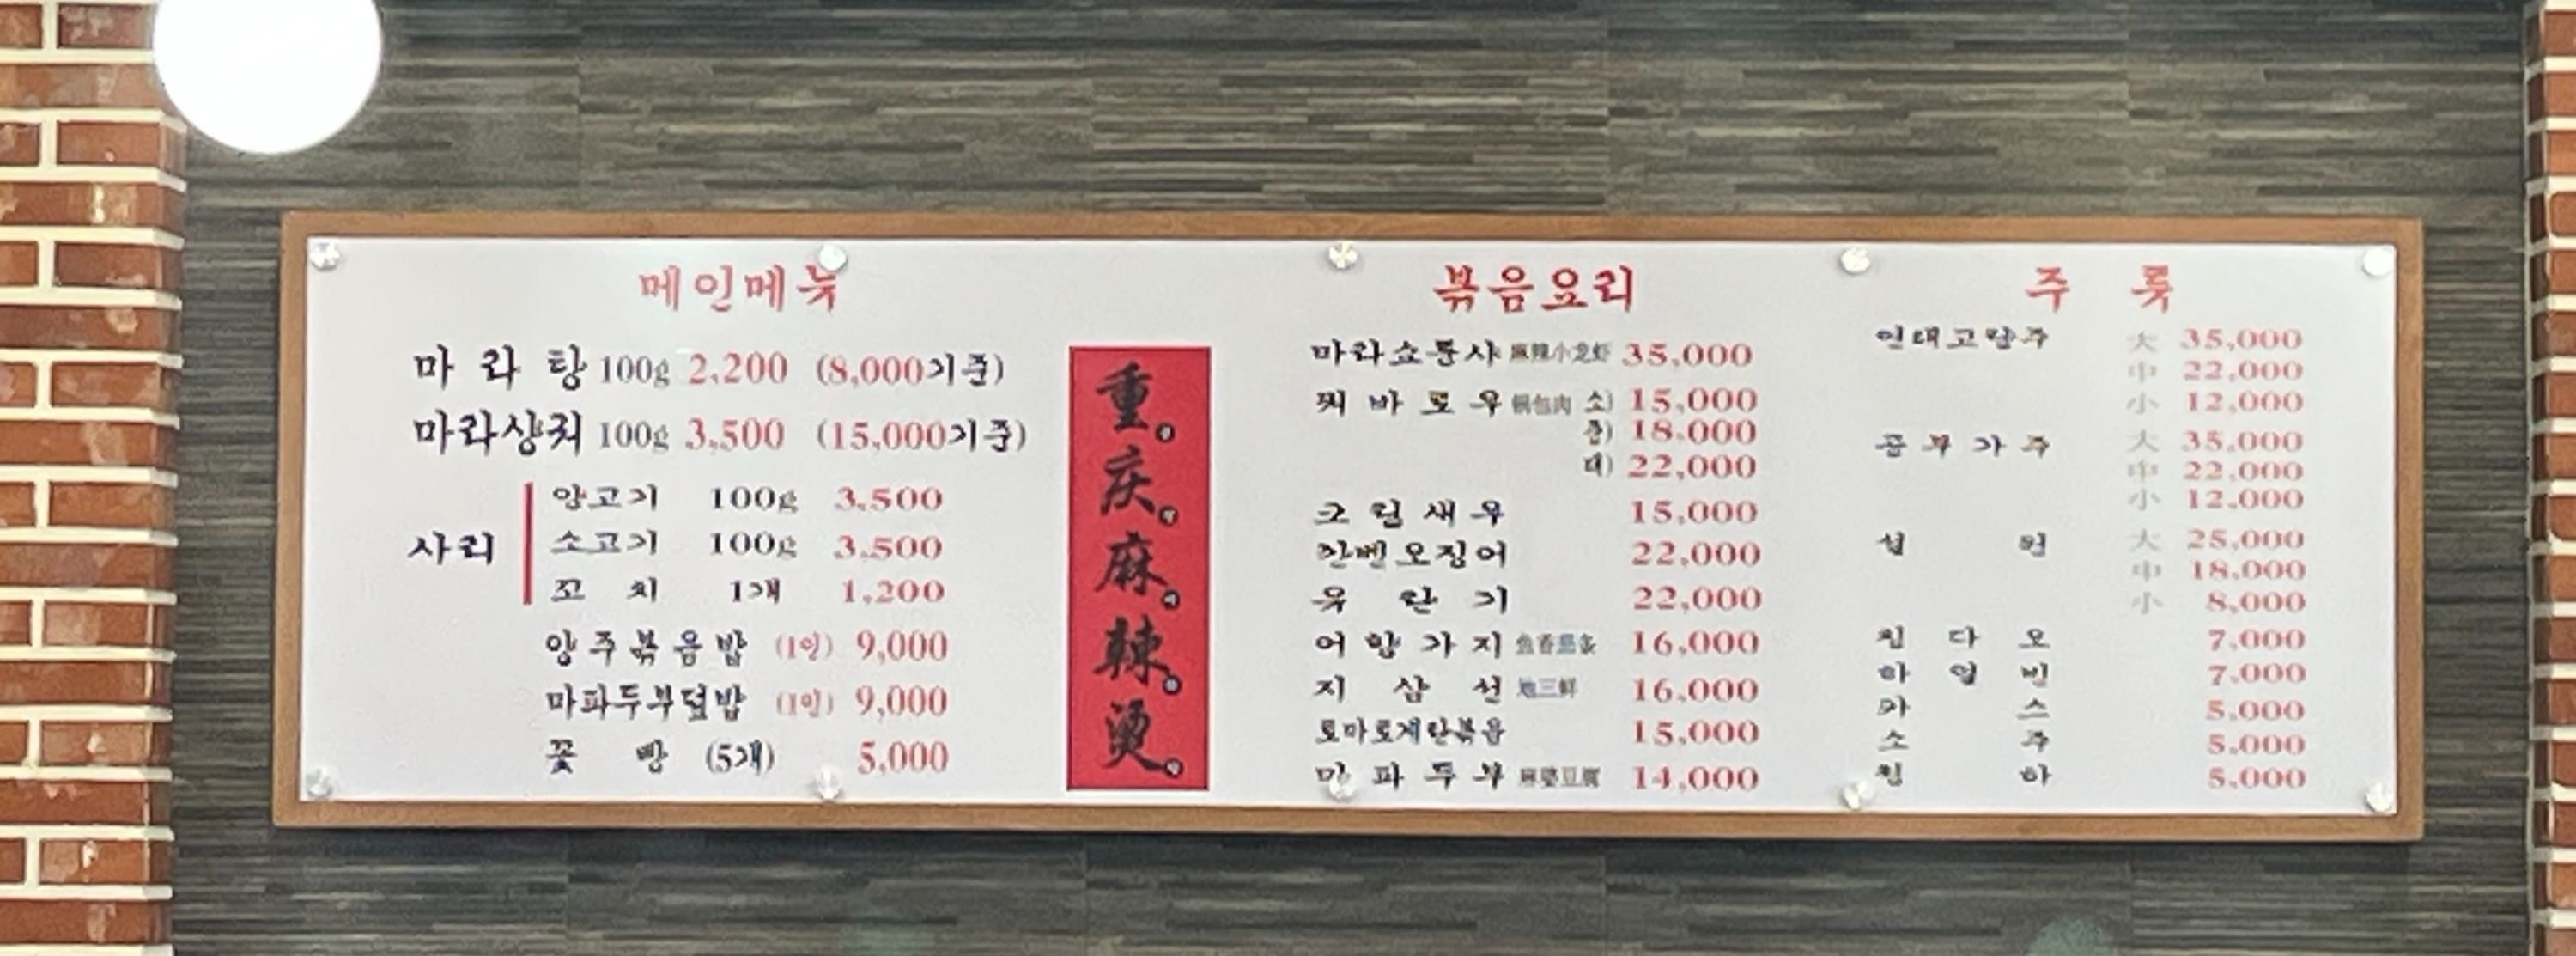 메인메뉴
마라탕 100g 2,200 (8,000기준)
마라샹궈 100g 3,500 (15,000기준)
사리
양고기 100g 3,500
소고기 100g 3,500
꼬치 1개 1,200
양주볶음밥 (1인) 9,000
마파두부덮밥 (1인) 9,000
꽃빵 (5개) 5,000
重。庆。麻。辣。烫。
볶음요리
마라쇼룽샤 麻辣小龙虾 35,000
꿔바로우 锅包肉 소) 15,000
중) 18,000
대) 22,000
크림새우 15,000
깐뻰오징어 22,000
유란기 22,000
어향가지 鱼香茄条 16,000
지삼선 地三鲜 16,000
토마토계란볶음 15,000
마파두부 麻婆豆腐 14,000
주류
연태고량주 大 35,000
中 22,000
小 12,000
공부가주 大 35,000
中 22,000
小 12,000
설원 大 25,000
中 18,000
小 8,000
칭다오 7,000
하얼빈 7,000
카스 5,000
소주 5,000
청하 5,000